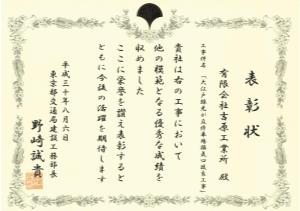 表彰状
有限会社吉原工業所 殿
工事件名
「大江戸線光が丘停車場橋上口改良工事」
貴社は右の工事において
他の模範となる優秀な成績を
収めました
ここに栄誉を讃え表彰すると
ともに今後の活躍を期待します
平成三十年八月六日
東京都交通局建設工務部長
野崎誠貴